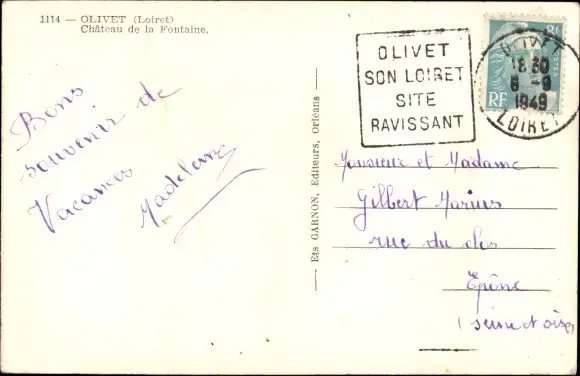 1114 — OLIVET (Loiret)
Château de la Fontaine.
Bons
souvenir de
Vacances
Madeleine
Ets GARNON, Editeurs, Orléans
OLIVET
SON LOIRET
SITE
RAVISSANT
OLIVET
18 30
6 - 9
1949
LOIRET
POSTES
RF
Monsieur et Madame
Gilbert Marius
rue du clos
Epône
(seine et oise)